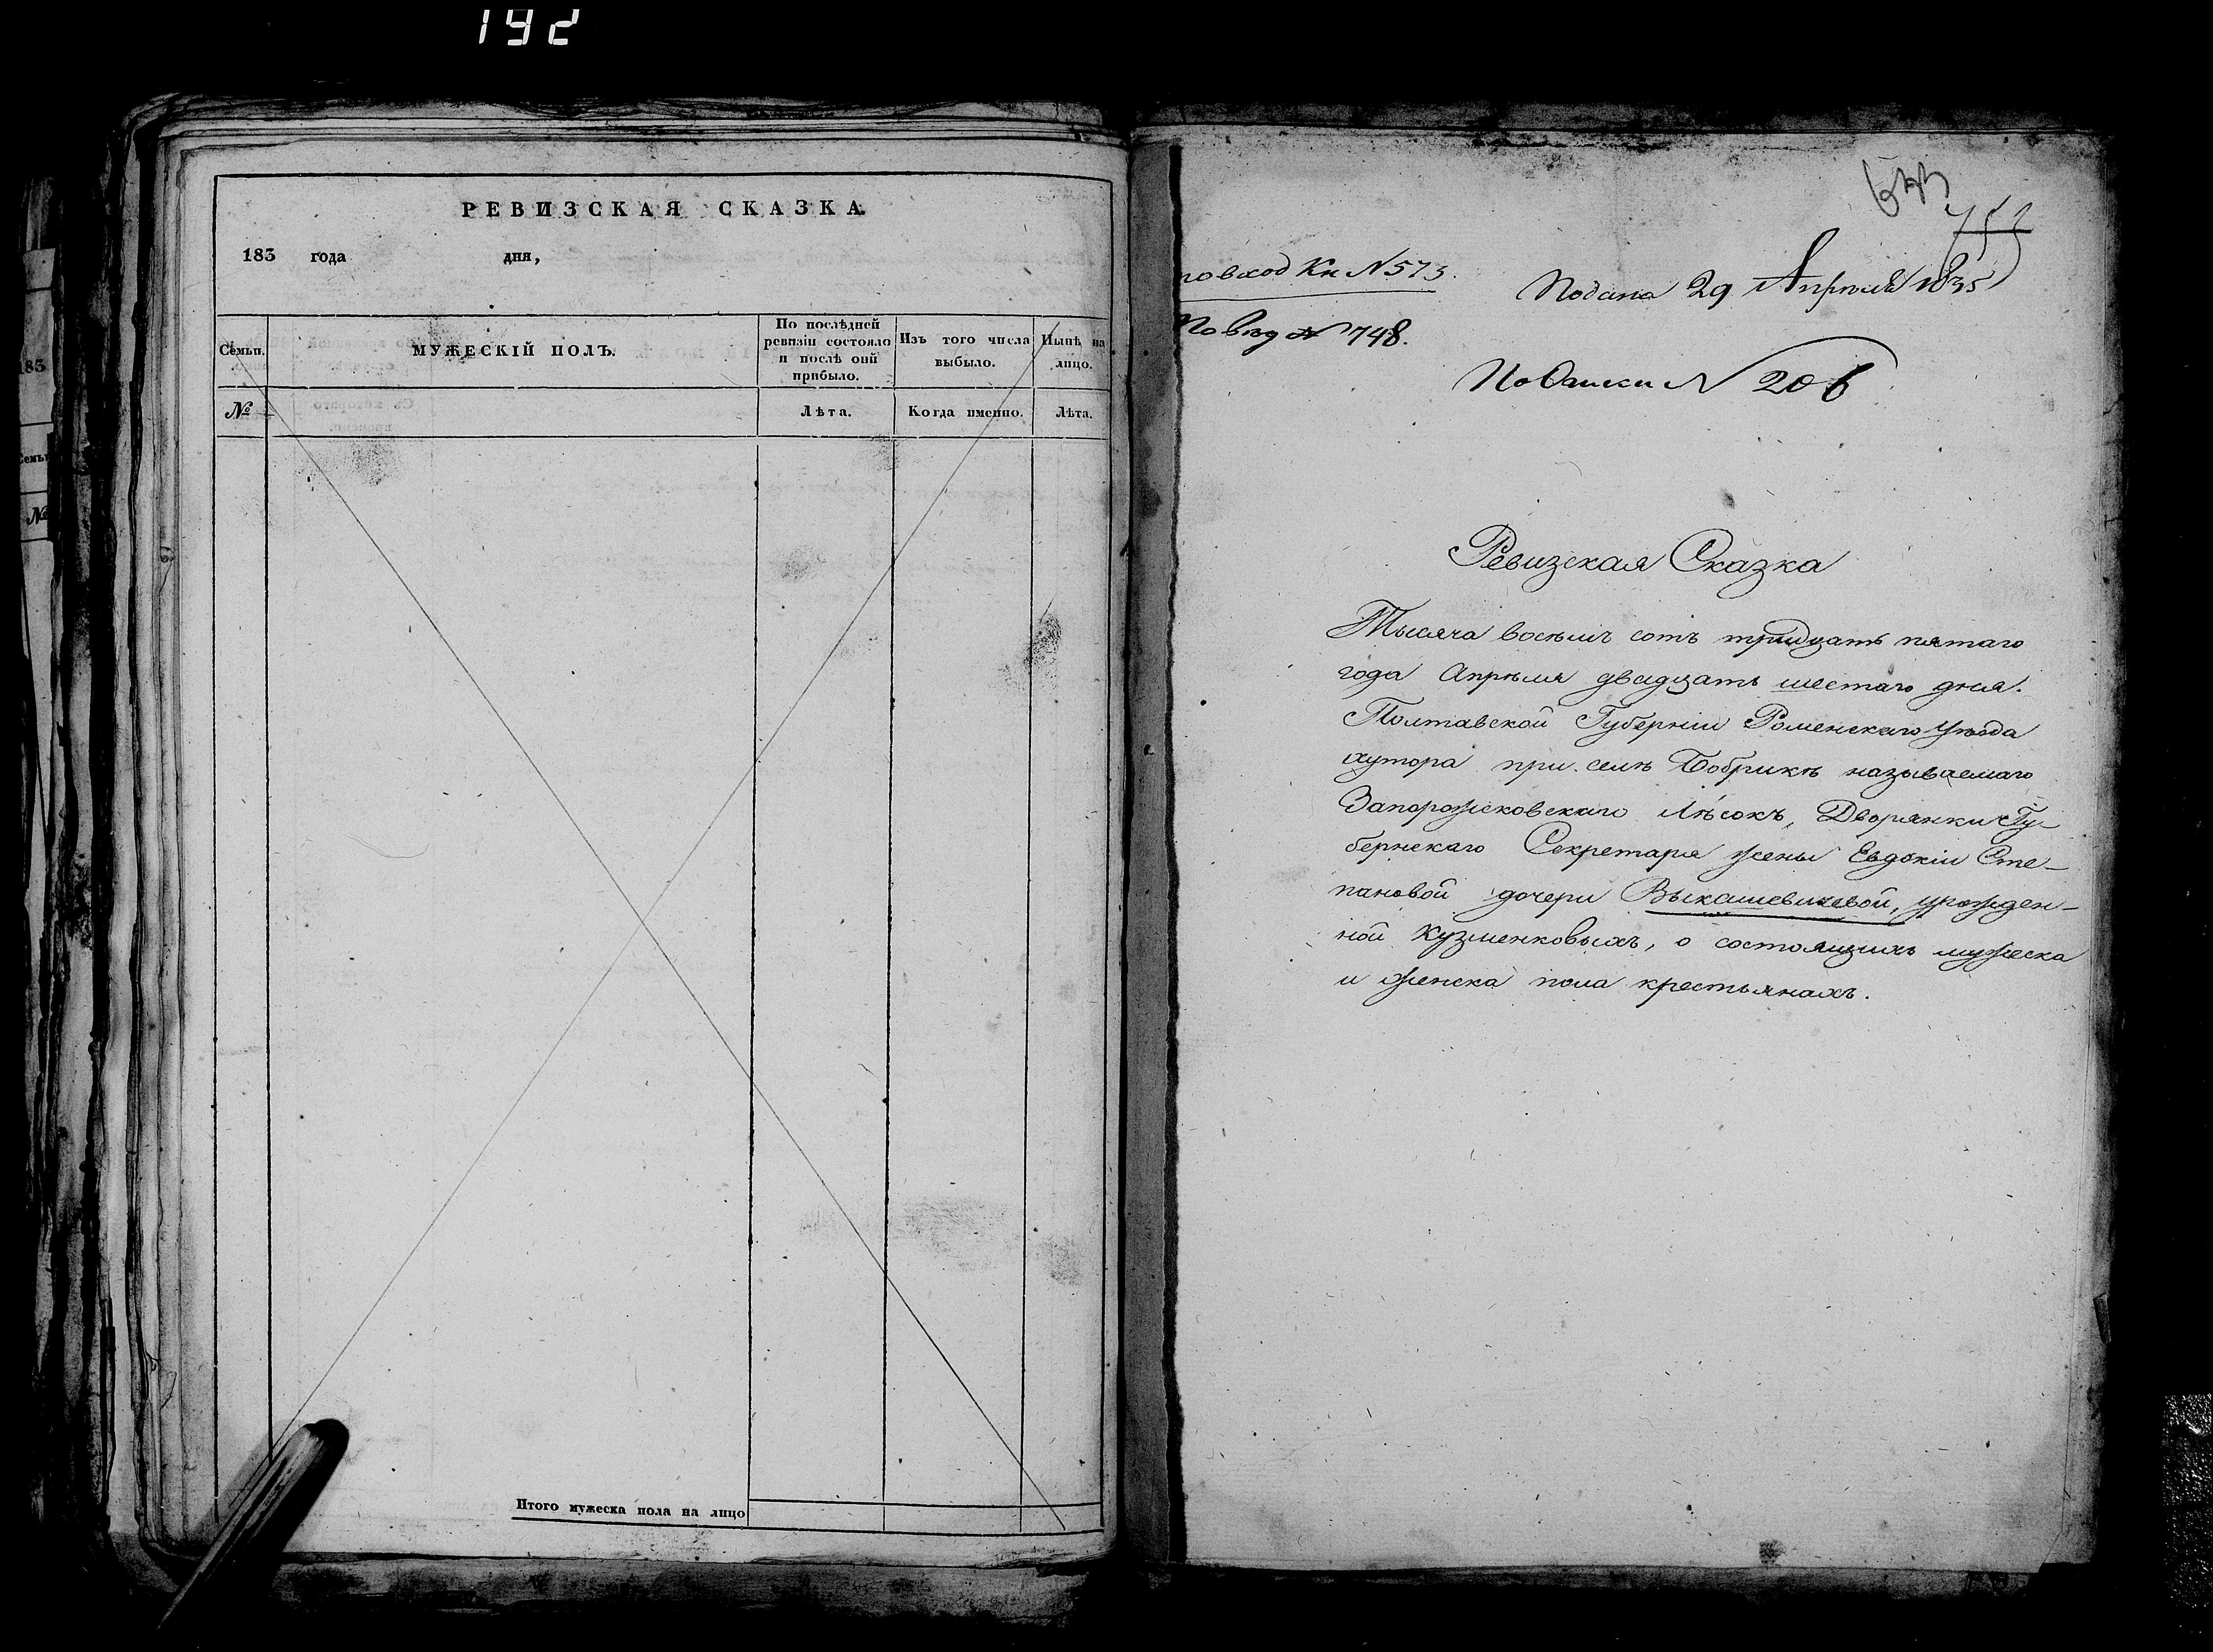 192
РЕВИЗСКАЯ СКАЗКА.
183 года дня,
Семьи.
МУЖЕСКІЙ ПОЛЪ.
По послѣдней
ревизіи состояло
и послѣ оий
прибыло.
Изъ того числа
выбыло.
Нынѣ на
лицо.
№
Лѣта.
Когда именно.
Лѣта.
Итого мужеска пола на лицо
183
№
по вход Кн N 573.
Подана 29 Апрѣля 1835
748.
N 206
Ревизская Сказка
Тысяча восемь сотъ тридцать пятаго
года Апрѣля двадцать шестаго дня.
Полтавской Губерніи Роменскаго Уѣзда
хутора при селѣ Бобрикѣ называемаго
Запорожсковскаго Лѣсокъ, Дворянки Гу-
бернскаго Секретаря жены Евдокіи Сте-
пановой дочери Выкашевичевой, урожден-
ной Кузменковыхъ, о состоящихъ мужеска
и женска пола крестьянахъ.